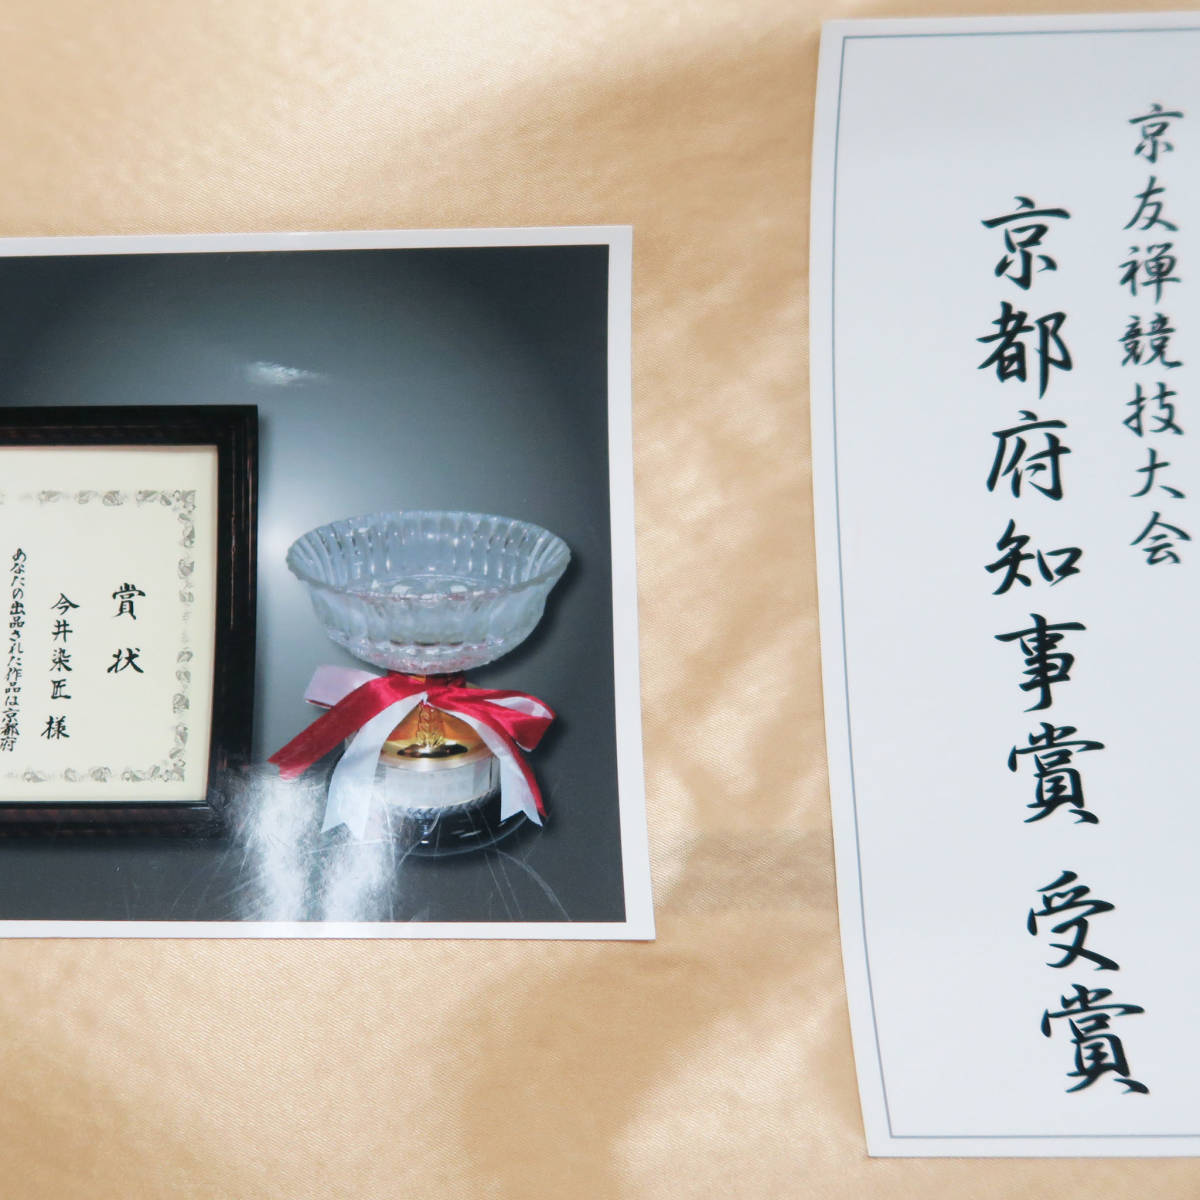 京友禅競技大会
京都府知事賞 受賞
賞状
今井染匠 様
あなたの出品された作品は京都府